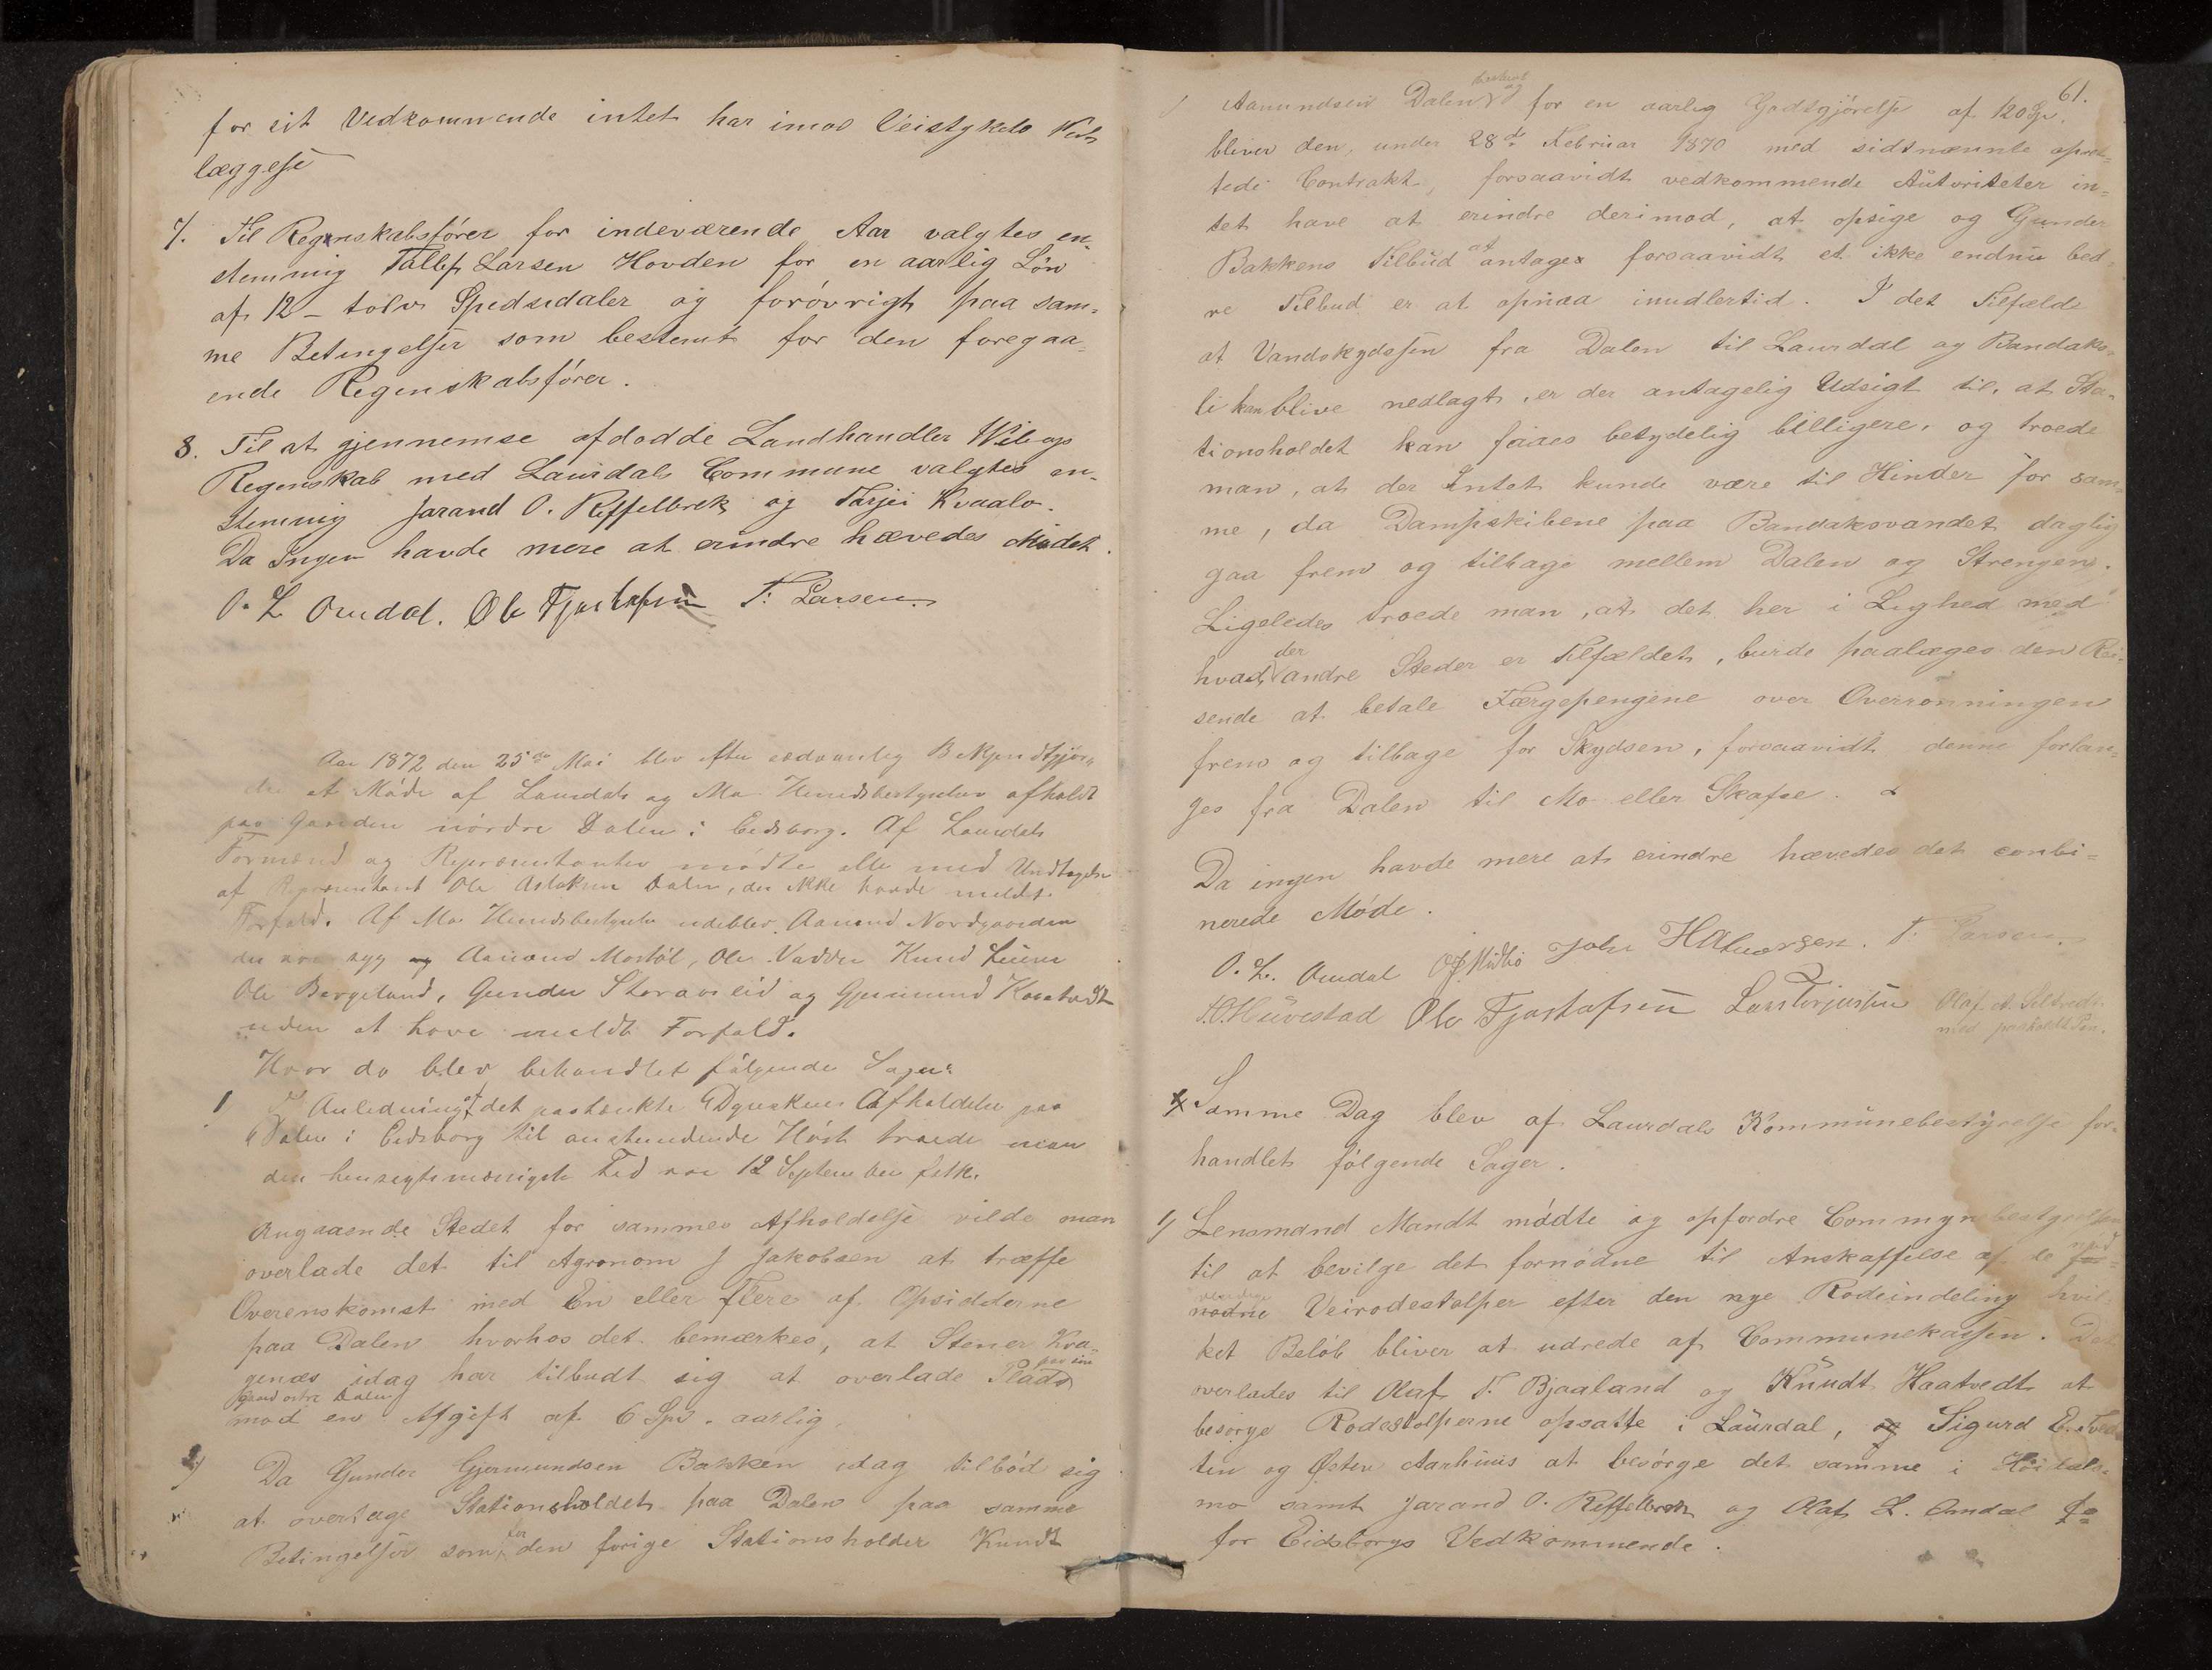 for sit Vedkommende intet har imod Veistykets Ned
læggelse
7. Til Regnskabsfører for indeværende Aar valgtes en-
stemmig Tallef Larsen Hovden for en aarlig Løn
af 12 – tolv Spedsidaler og forøvrigt paa sam-
me Betingelser som bestemt for den foregaa-
ende Regenskabsfører.
8. Til at gjennemse afdødde Landhandler Wibogs
Regenskab med Laurdals Commune valgtes en-
stemmig Jarand O. Reffelbrek og Tarjei Kvaalo.
Da Ingen havde mere at erindre hævedes Mødet.
O. L. Omdal. Ole Tjostofsen T. Larsen
Aar 1872 den 25de Mai blev efter sædvanlig Bekjendtgjør-
else et Møde af Laurdals og Mo Herredsbestyrelser afholdt
paa Gaarden nørdre Dalen i Eidsborg. Af Laurdals
Formænd og Repræsentanter mødte alle med Undtagelse
af Repræsentant Ole Aslaksen Dalen, der ikke havde meldt
Forfald. Af Mo Herredsbestyrelse udeblev Aanund Nordgaarden
der var syg og Aanund Mostøl, Ole Vadder Knud
Ole Bergeland, Gunder Storaaslid og Gjermund
uden at have meldt Forfald.
Hvor da blev behandlet følgende Sager
1 I Anledning af det paatænkte Dyrskues Afholdelse paa
Dalen i Eidsborg til anstundende Høst troede man
den hensigtsmæssigste Tid var 12 September førstk.
Angaaende Stedet for sammes Afholdelse vilde man
overlade det til Agronom J Jakobsen at træffe
Overenskomst med En eller Flere af Opsidderne
paa Dalen hvorhos det bemærkes, at Stener Kra-
genæs idag har tilbudt sig at overlade Plads paa sin
Gaard østre Dalen
mod en Afgift af 6 Spd. aarlig.
2) Da Gunder Gjermundsen Bakken idag tilbød sig
at overtage Stationsholdet paa Dalen paa samme
Betingelser som for den forige Stationsholder Knudt
61.
Aamundsen Dalen bestemt og for en aarlig Godtgjørelse af 120 Spd.
bliver den, under 28de Februar 1870 med sidtnævnte opret-
tede Contrakt, forsaavidt vedkommende Autoriteter in-
tet have at erindre derimod, at opsige og Gunder
Bakkens Tilbud at antages forsaavidt et ikke endnu bed-
re Tilbud er at opnaa imidlertid. I det Tilfælde
at Vandskydssen fra Dalen til Laurdal og Bandaks-
li kan blive nedlagt, er der antagelig Udsigt til, at Sta-
tionsholdet kan faaes betydelig billigere, og troede
man, at der Intet kunde være til Hinder for sam-
me, da Dampskibene paa Bandaksvandet daglig
gaa frem og tilbage mellem Dalen og Strengen.
Ligeledes troede man, at det her i Lighed med
hvad der andre Steder er Tilfældet, burde paalæges den Rei-
sende at betale Færgepengene over Overrønningen
frem og tilbage for Skydsen, forsaavidt denne forlan-
ges fra Dalen til Mo eller Skafse.
Da ingen havde mere at erindre hævedes det combi-
nerede Møde.
O. L. Omdal John Halvorsen. T. Larsen
Huvestad Ole Tjostofsen Lars Torjussen Olaf
med paaholdt Pen.
Samme Dag blev af Laurdals Kommunebestyrelse for-
handlet følgende Sager.
1) Lensmand Mandt mødte og opfordre Commynebestyrelsen
til at bevilge det fornødne til Anskaffelse af de nød
vendige Veirodestolper efter den nye Rodeindeling hvil-
ket Beløb bliver at udrede af Communekassen. Det
overlades til Olaf T. Bjaaland og Knudt Haatvedt at
besørge Rodestolperne opsatte i Laurdal, og Sigurd E. Tved
ten og Østen Aarhuus at besørge det samme i Høidals-
mo samt Jarand O. Reffelbrek og Olaf L. Omdal
for Eidsborgs Vedkommende.